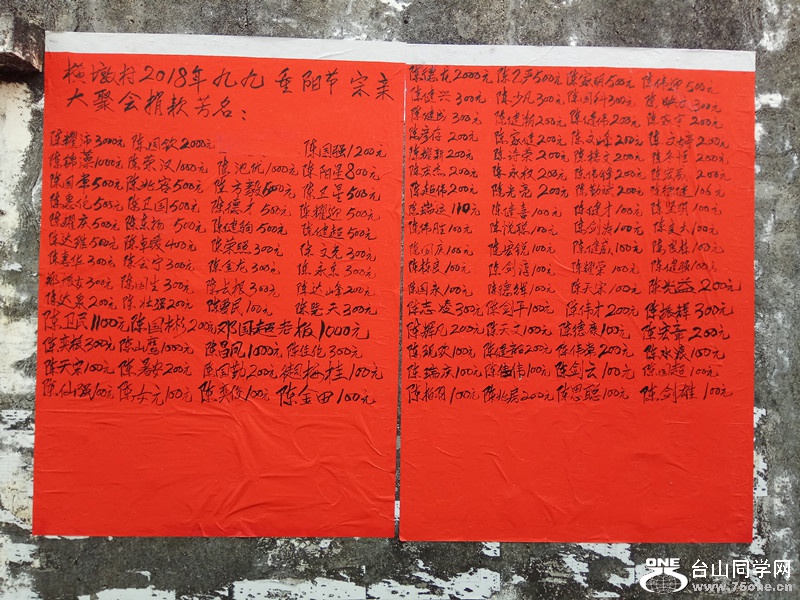 横墩村2018年九九重阳节宗亲
大聚会捐款芳名：
陈耀沛3000元 陈国钦2000元 陈国强1200元
陈锦藻1000元 陈荣汉1000元 陈沱优1000元 陈阳星800元
陈国 500元 陈兆容500元 陈方数600元 陈卫星500元
陈惠伦500元 陈卫国500元 陈德才500元 陈耀迎500元
陈耀庆500元 陈 杨500元 陈健驹500元 陈健超500元
陈达雅500元 陈 暖400元 陈荣照300元 陈文光300元
陈 华300元 陈公宁300元 陈金龙300元 陈永京300元
300元 陈国生300元 陈长根300元 陈达峰200元
陈达泉200元 陈壮强200元 陈 民100元 陈 天300元
陈卫民1100元 陈国彬200元 邓国超老板1000元
陈奕根300元 陈山 100元 陈昌凤1000元 陈佳伦300元
陈天宋100元 陈 农200元 陈国勤200元 梅桂100元
陈仙强100元 陈女元100元 陈奕俊100元 陈金田100元
陈德龙2000元 陈 500元 陈家明500元 陈伟卿500元
陈健兴300元 陈少凡300元 陈国科300元 陈 300元
陈健威300元 陈健衡200元 陈伟 200元 陈 宁200元
陈彦存200元 陈家健200元 陈文峰200元 陈文婷200元
陈耀新200元 陈诗荣200元 陈德文200元 陈冬恒200元
陈宏杰200元 陈永权200元 陈伟锋200元 陈宏 200元
陈超伟200元 陈光亮200元 陈勤斌200元 陈 健100元
陈瑞远110元 陈健喜100元 陈健才100元 陈坚琪100元
陈伟胜100元 陈悦聪100元 陈剑涛100元 陈 大100元
陈国庆100元 陈宏锐100元 陈健 100元 100元
陈栋良100元 陈剑 100元 陈耀荣100元 陈健强100元
陈国永100元 陈德辉100元 陈天宋100元 陈长益200元
陈志凌300元 陈剑平100元 陈伟才200元 陈振辉300元
陈辉凡200元 陈天文100元 陈德良100元 陈宏 200元
陈 农100元 陈建韶200元 陈伟 200元 陈水浓100元
陈瑞庆100元 陈 伟100元 陈剑云100元 陈国超100元
陈柏羽100元 陈兆居200元 陈思聪100元 陈剑雄100元
ONE 台山同学网
www.75one.cn